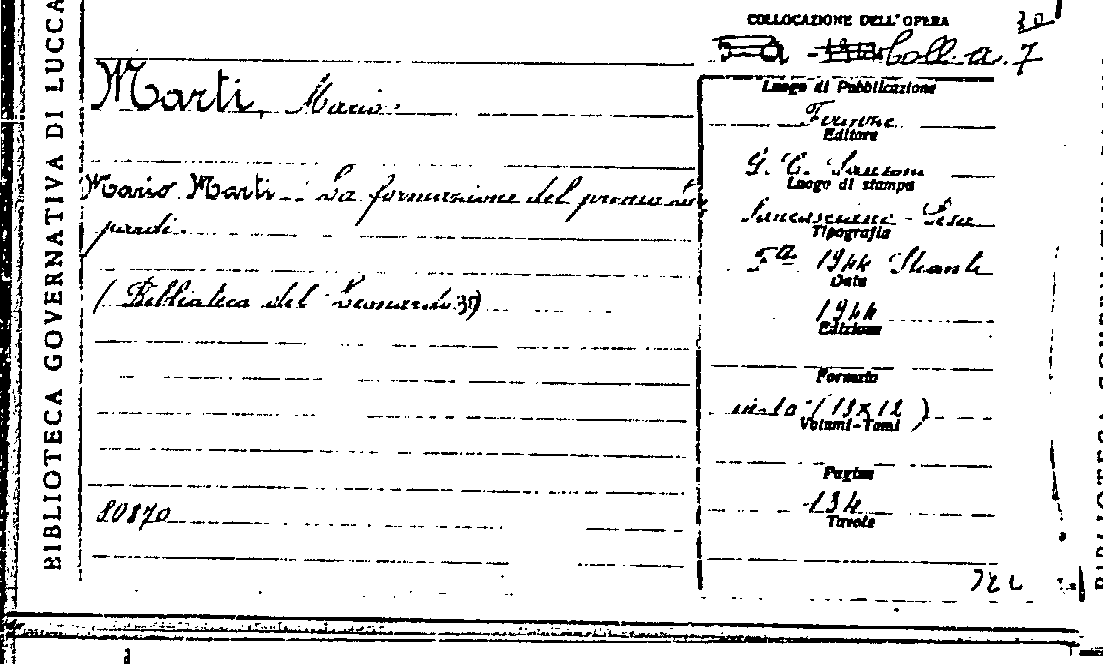 BIBLIOTECA GOVERNATIVA DI LUCCA
COLLOCAZIONE DELL'OPERA
30
Coll. a. 7
Marti, Mario.
Mario Marti. La formazione del primo Leo
pardi.
(Biblioteca del Leonardo 39)
80870
Luogo di Pubblicazione
Firenze
Editore
G. C. Sansoni
Luogo di stampa
Sancasciano - Pesa
Tipografia
1944
Data
1944
Edizione
Formato
in-10 (19x12)
Volumi-Tomi
Pagine
134
Tavole